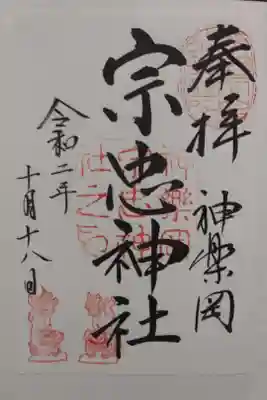 奉拝
神楽岡
宗忠神社
令和二年
十月十八日